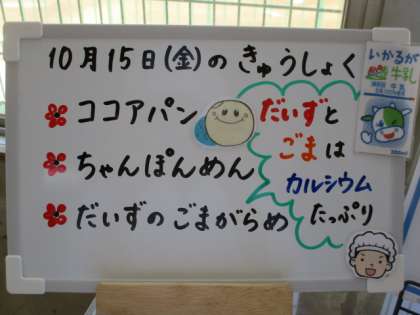 10月15日(金)のきゅうしょく
ココアパン
ちゃんぽんめん
だいずのごまがらめ
だいずと
ごまは
カルシウム
たっぷり
いかるが
牛乳